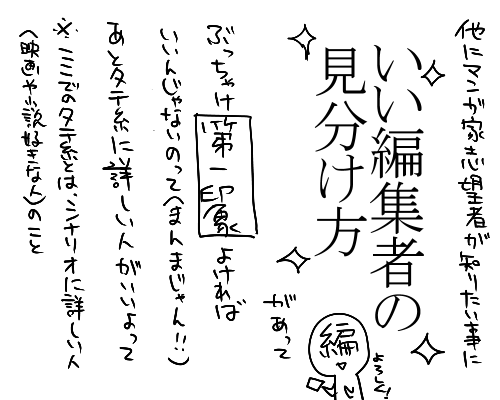 他にマンガ家志望者が知りたい事に
いい編集者の
見分け方
があって
編
よろしく!
ぶっちゃけ第一印象よければ
いいんじゃないのって(まんまじゃん!!)
あとタテ系に詳しい人がいいよって
※ここでのタテ系とは、シナリオに詳しい人
(映画や小説好きな人)のこと